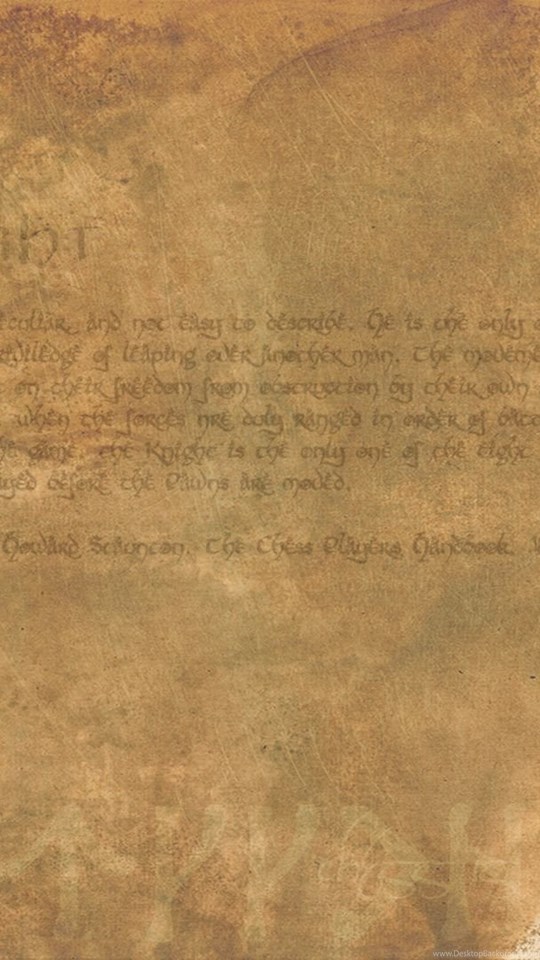 GHT
eculiar, and not easy to describe. He is the only o
rivilledge of leaping over another man. The moveme
t on their freedom from obstruction by their own
when the forces are duly ranged in order of batt
he game, the Knight is the only one of the eight
ayed before the Pawns are moved.
Howard Staunton. The Chess Players Handbook.